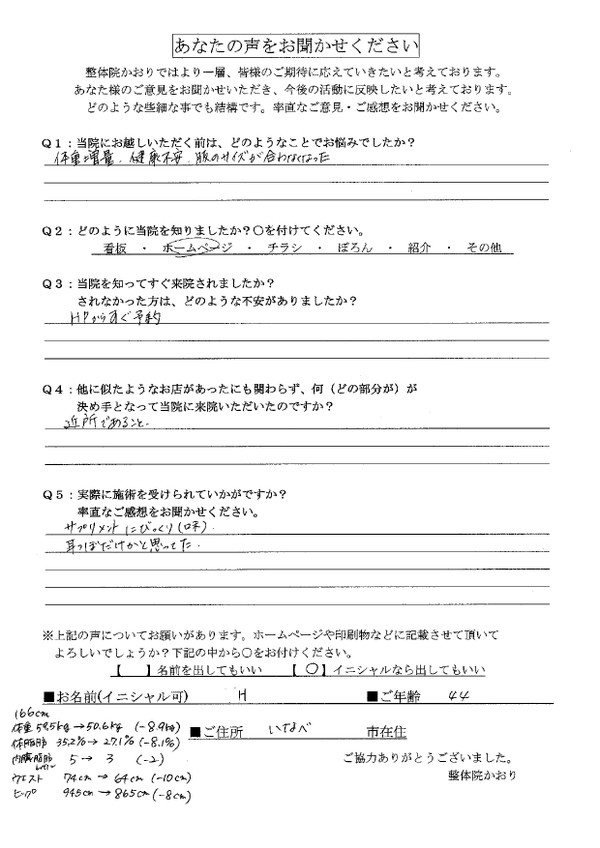 あなたの声をお聞かせください
整体院かおりではより一層、皆様のご期待に応えていきたいと考えております。
あなた様のご意見をお聞かせいただき、今後の活動に反映したいと考えております。
どのような些細な事でも結構です。率直なご意見・ご感想をお聞かせください。
Q1：当院にお越しいただく前は、どのようなことでお悩みでしたか？
体重増量、健康不安、服のサイズが合わなくなった
Q2：どのように当院を知りましたか？○を付けてください。
看板 ・ ホームページ ・ チラシ ・ ぽろん ・ 紹介 ・ その他
Q3：当院を知ってすぐ来院されましたか？
されなかった方は、どのような不安がありましたか？
HPからすぐ予約
Q4：他に似たようなお店があったにも関わらず、何（どの部分が）が
決め手となって当院に来院いただいたのですか？
近所であること。
Q5：実際に施術を受けられていかがですか？
率直なご感想をお聞かせください。
サプリメントにびっくり(味)
耳つぼだけかと思ってた。
※上記の声についてお願いがあります。ホームページや印刷物などに記載させて頂いて
よろしいでしょうか？下記の中から○をお付けください。
【 】名前を出してもいい 【 ○ 】イニシャルなら出してもいい
■お名前(イニシャル可) H ■ご年齢 44
166cm
体重 59.5kg → 50.6kg (-8.9kg)
■ご住所 いなべ 市在住
体脂肪 35.2% → 27.1% (-8.1%)
内臓脂肪レベル 5 → 3 (-2)
ウエスト 74cm → 64cm (-10cm)
ヒップ 94.5cm → 86.5cm (-8cm)
ご協力ありがとうございました。
整体院かおり